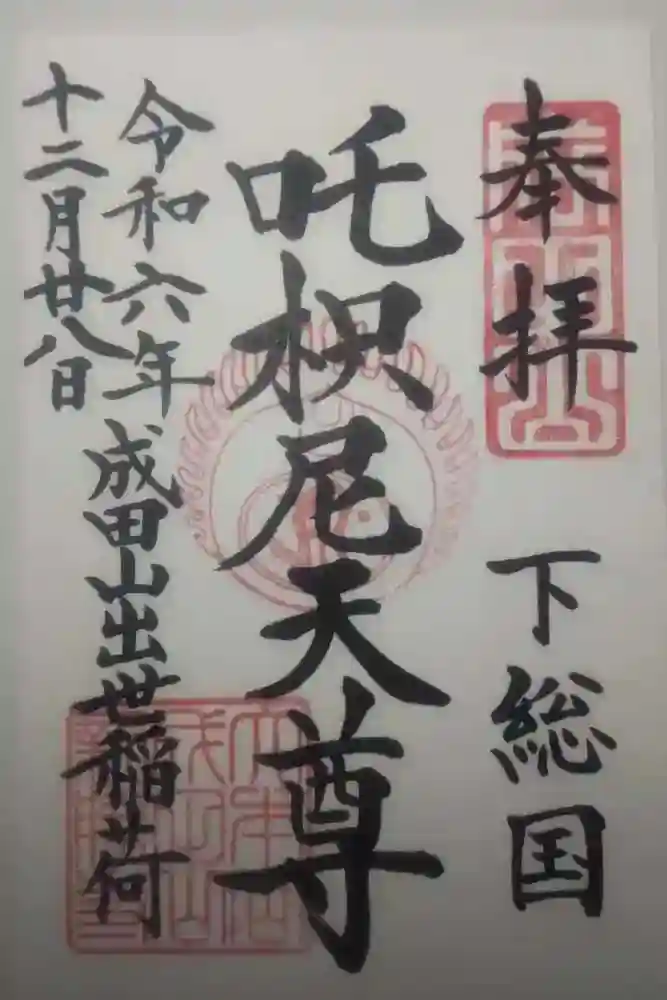 奉拝
下総国
吒枳尼天尊
令和六年
成田山出世稲荷
十二月廿八日